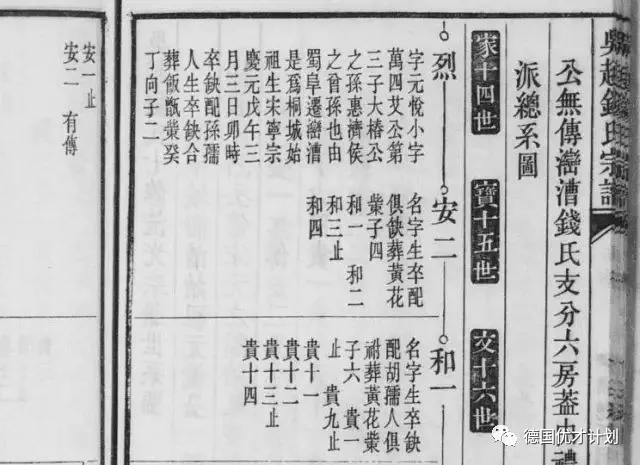 吳越錢氏宗譜
公無傳灣漕錢氏支分六房葢
派總系圖
家十四世
寶十五世
文十六世
烈
字元悅小字
萬四艾公第
三子大椿公
之孫惠濟侯
之曾孫也由
蜀阜遷灣漕
是爲桐城始
祖生宋寧宗
慶元戊午三
月三日卯時
卒缺配孫孺
人生卒缺合
葬飯甑棠癸
丁向子二
安二
名字生卒配
俱缺葬黃花
棠子四
和一 和二
和三止
和四
和一
名字生卒缺
配胡孺人俱
祔葬黃花棠
子六 貴一
止 貴九止
貴十一
貴十二
貴十三止
貴十四
安一止
安二 有傳
德国优才计划